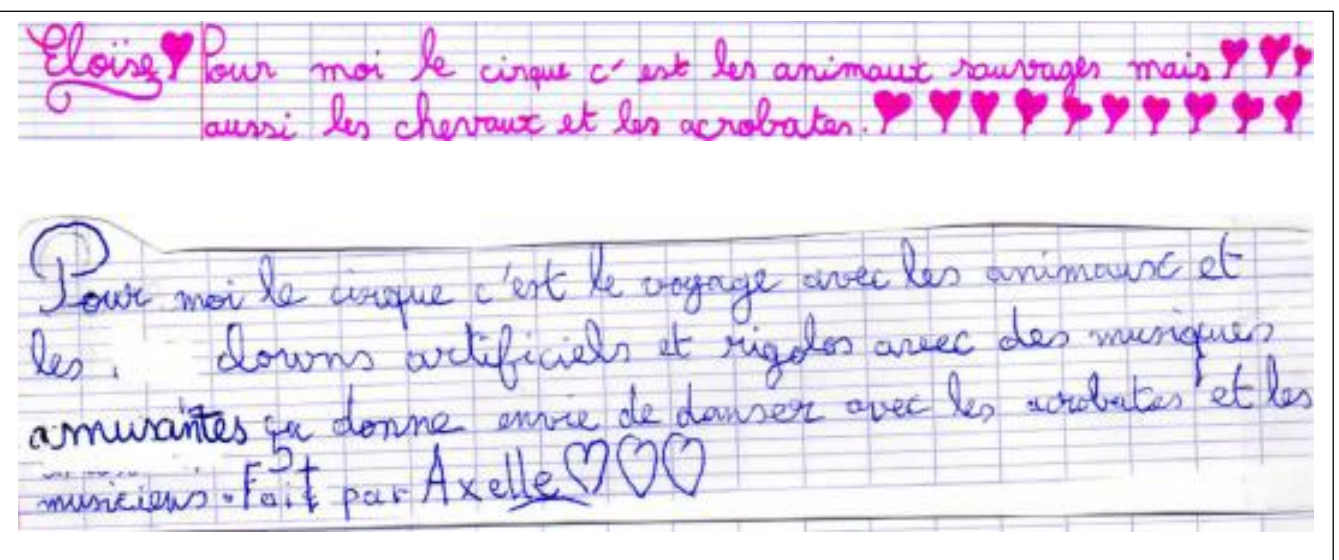 Eloïse Pour moi le cirque c'est les animaux sauvages mais
aussi les chevaux et les acrobates.
Pour moi le cirque c'est le voyage avec les animaux et
les clowns artificiels et rigolos avec des musiques
amusantes ça donne envie de danser avec les acrobates et les
musiciens. Fait par Axelle